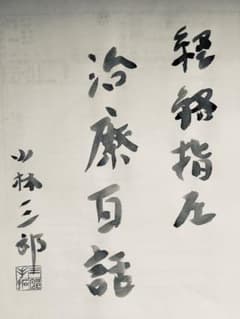 経絡指圧
治療百話
小林三郎